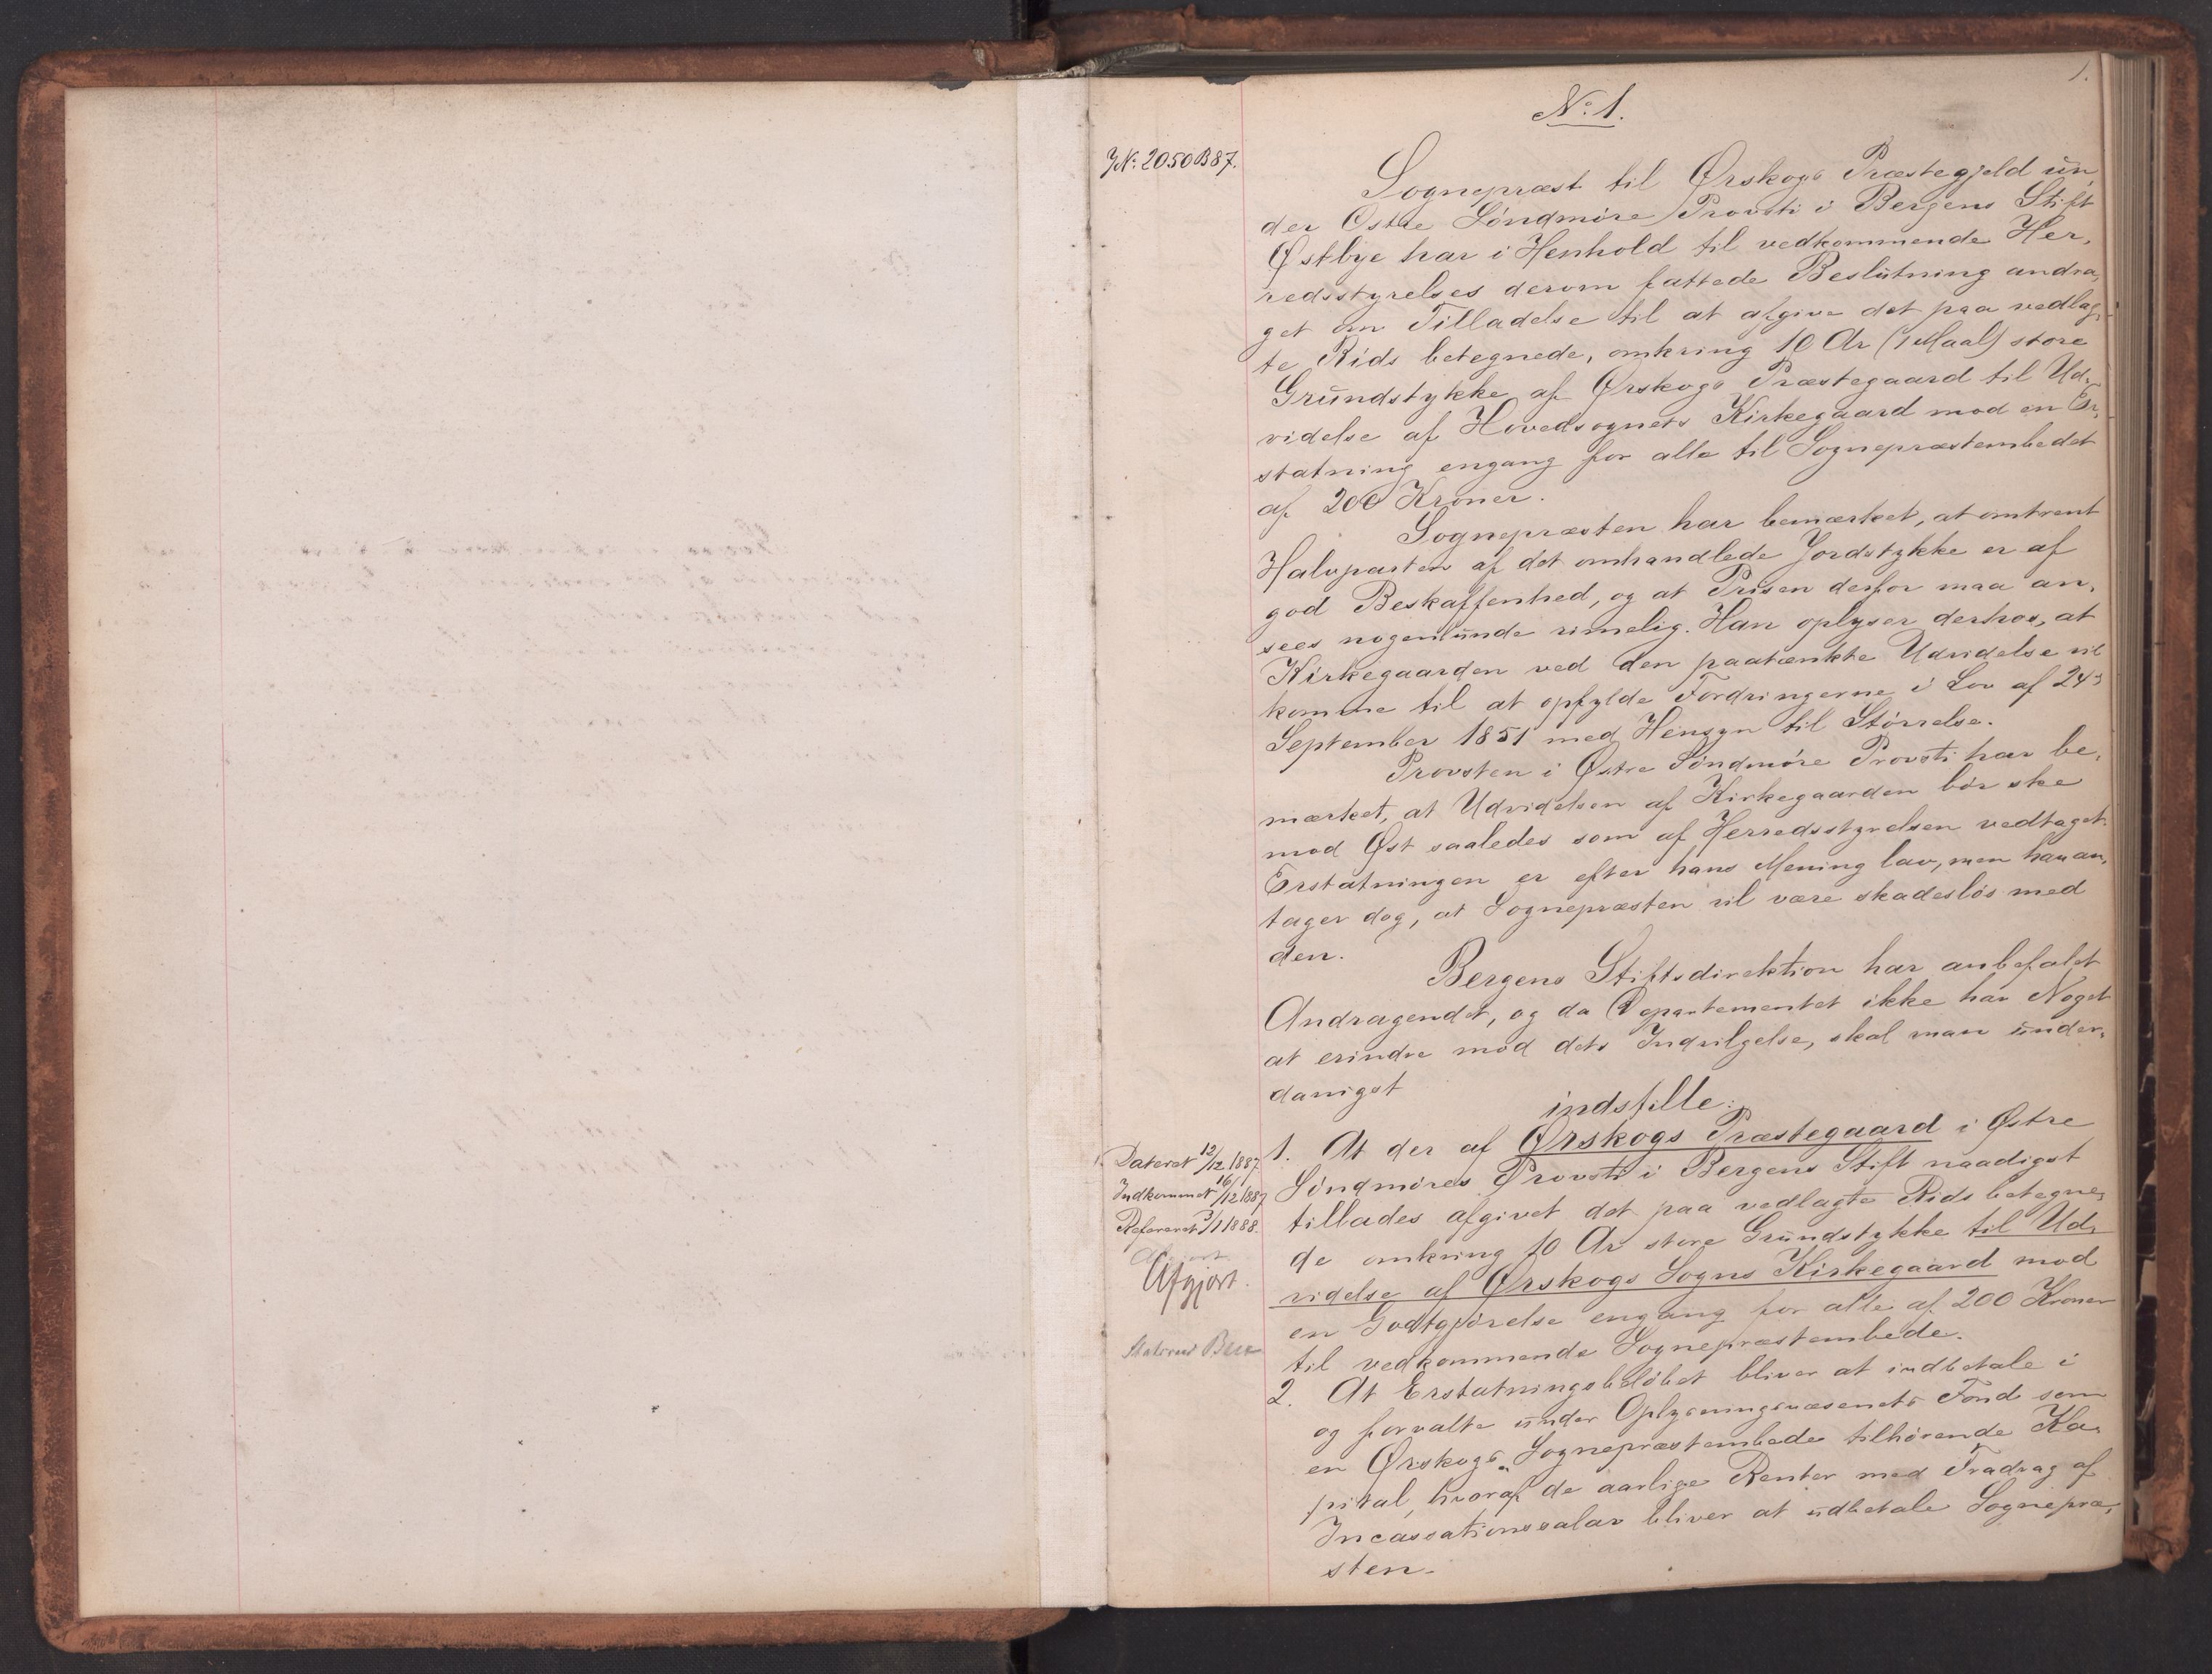 1.
No. 1.
JN: 2050 B 87.
Sognepræst til Ørskogs Præstegjeld un,
der Østre Söndmöre Provsti i Bergens Stift
Østbye har i Henhold til vedkommende Her,
redsstyrelses derom fattede Beslutning andra,
get om Tilladelse til at afgive det paa vedlag,
te Rids betegnede, omkring 10 Ar (1 Maal) store
Grundstykke af Ørskogs Præstegaard til Ud,
videlse af Hovedsognets Kirkegaard mod en Er,
statning engang for alle til Sognepræstembedet
af 200 Kroner.
Sognepræsten har bemærket, at omtrent
Halvparten af det omhandlede Jordstykke er af
god Beskaffenhed, og at Prisen derfor maa an,
sees nogenlunde rimelig. Han oplyser derhos, at
Kirkegaarden ved den paatænkte Udvidelse vil
komme til at opfylde Fordringerne i Lov af 24de
September 1851 med Hensyn til Störrelse.
Provsten i Østre Söndmöre Provsti har be,
mærket, at Udvidelsen af Kirkegaarden bör ske
mod Øst saaledes som af Herredsstyrelsen vedtaget.
Erstatningen er efter hans Mening lav, men han an,
tager dog, at Sognepræsten vil være skadeslös med
den.
Bergens Stiftsdirektion har anbefalet
Andragendet, og da Departementet ikke har Noget
at erindre mod dets Indvilgelse, skal man under,
danigst
indstille:
1. At der af Ørskogs Præstegaard i Østre
Söndmöres Provsti i Bergens Stift naadigst
tillades afgivet det paa vedlagte Rids betegne,
de omkring 10 Ar store Grundstykke til Ud,
videlse af Ørskogs Sogns Kirkegaard mod
en Godtgjörelse engang for alle af 200 Kroner
til vedkommende Sognepræstembede.
2. At Erstatningsbelöbet bliver at indbetale i
og forvalte under Oplysningsvæsenets Fond som
en Ørskogs Sognepræstembede tilhörende Ka,
pital, hvoraf de aarlige Renter med Fradrag af
Incassationssalar bliver at udbetale Sognepræ,
sten.
Dateret 12/12 1887
Indkommet 16/12 1887
Refereret 3/1 1888.
Afgjort
Afgjort.